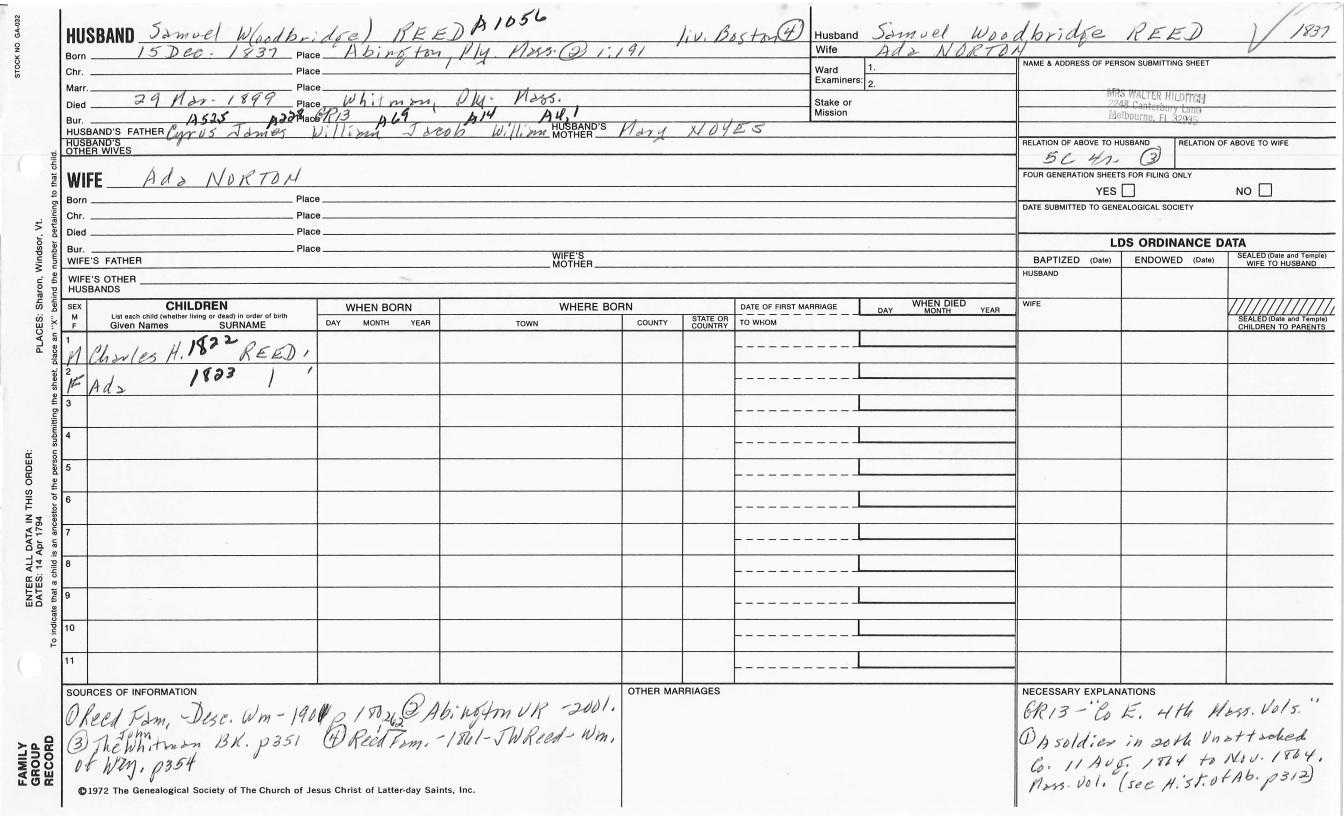 STOCK NO. GA-032
HUSBAND Samuel W(oodbridge) REED A1056 liv. Boston ④
Born 15 Dec. 1837 Place Abington, Ply. Mass. ② 1:191
Chr. Place
Marr. Place
Died 29 Mar. 1899 Place Whitman, Ply. Mass.
Bur. A525 A228 Place GR13 A69 A14 A4,1
HUSBAND'S FATHER Cyrus James William Jacob William HUSBAND'S MOTHER Mary NOYES
HUSBAND'S OTHER WIVES
WIFE Ada NORTON
Born Place
Chr. Place
Died Place
Bur. Place
WIFE'S FATHER WIFE'S MOTHER
WIFE'S OTHER HUSBANDS
Husband Samuel Woodbridge REED √ 1837
Wife Ada NORTON
Ward Examiners: 1.
2.
Stake or Mission
NAME & ADDRESS OF PERSON SUBMITTING SHEET
MRS WALTER HILDITCH
2248 Canterbury Lane
Melbourne, FL 32935
RELATION OF ABOVE TO HUSBAND RELATION OF ABOVE TO WIFE
5C 4r. ③
FOUR GENERATION SHEETS FOR FILING ONLY
YES NO
DATE SUBMITTED TO GENEALOGICAL SOCIETY
LDS ORDINANCE DATA
BAPTIZED (Date) ENDOWED (Date) SEALED (Date and Temple) WIFE TO HUSBAND
HUSBAND
WIFE
SEALED (Date and Temple) CHILDREN TO PARENTS
SEX M F CHILDREN WHEN BORN WHERE BORN DATE OF FIRST MARRIAGE WHEN DIED
List each child (whether living or dead) in order of birth
Given Names SURNAME DAY MONTH YEAR TOWN COUNTY STATE OR COUNTRY TO WHOM DAY MONTH YEAR
1 M Charles H. 1822 REED
2 F Ada 1823
3
4
5
6
7
8
9
10
11
SOURCES OF INFORMATION
① Reed Fam, -Desc. Wm-1901 p 180, 262 ② Abington VR -2001.
③ The John Whitman BK. p351 ④ Reed Fam. -1861-JWReed-Wm.
of Wey. p354
OTHER MARRIAGES
NECESSARY EXPLANATIONS
GR13-"Co E. 4th Mass. Vols."
① A soldier in 20th Unattached
Co. 11 Aug. 1864 to Nov. 1864.
Mass. Vol. (see Hist. of Ab. p312)
©1972 The Genealogical Society of The Church of Jesus Christ of Latter-day Saints, Inc.
FAMILY GROUP RECORD
ENTER ALL DATA IN THIS ORDER:
DATES: 14 Apr 1794 PLACES: Sharon, Windsor, Vt.
To indicate that a child is an ancestor of the person submitting the sheet, place an "X" behind the number pertaining to that child.